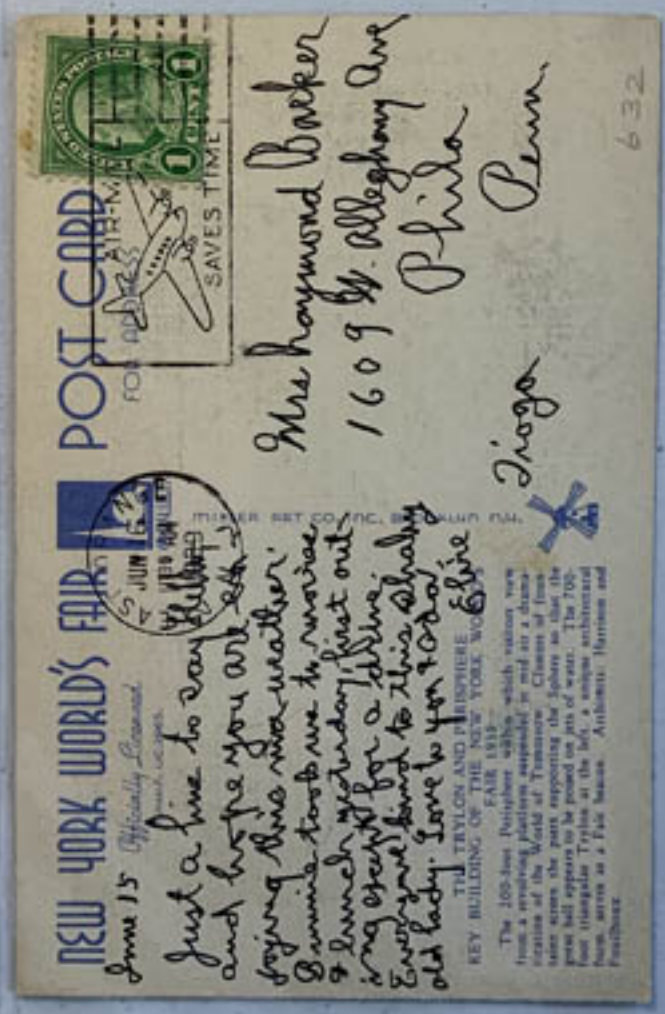 NEW YORK WORLD'S FAIR POST CARD
Officially Licensed
FOR ADDRESS
AIR-MAIL
SAVES TIME
JUN 16
1939
632
June 15
Just a line to say "Hello,"
and hope you are en-
joying this weather.
took me to movies
& lunch yesterday, first out-
ing except for a drive.
Everyone kind to this shaky
old lady. Love to you & Ada
Elsie
Mrs Raymond Barker
1609 W. Allegheny Ave
Phila
Tioga Penn.
MILLER ART CO., INC. BROOKLYN N.Y.
THE TRYLON AND PERISPHERE
KEY BUILDING OF THE NEW YORK WORLD'S
FAIR 1939
The 200-foot Perisphere within which visitors view
from a revolving platform suspended in mid air a drama-
tization of the World of Tomorrow. Clusters of foun-
tains screen the piers supporting the Sphere so that the
great ball appears to be poised on jets of water. The 700-
foot triangular Trylon at the left, a unique architectural
form, serves as a Fair beacon. Architects: Harrison and
Fouilhoux